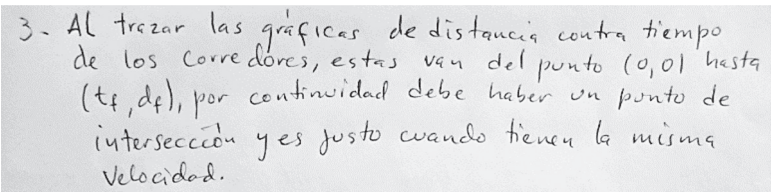 3- Al trazar las gráficas de distancia contra tiempo
de los corredores, estas van del punto (0,0) hasta
(tf, df), por continuidad debe haber un punto de
intersección y es justo cuando tienen la misma
velocidad.